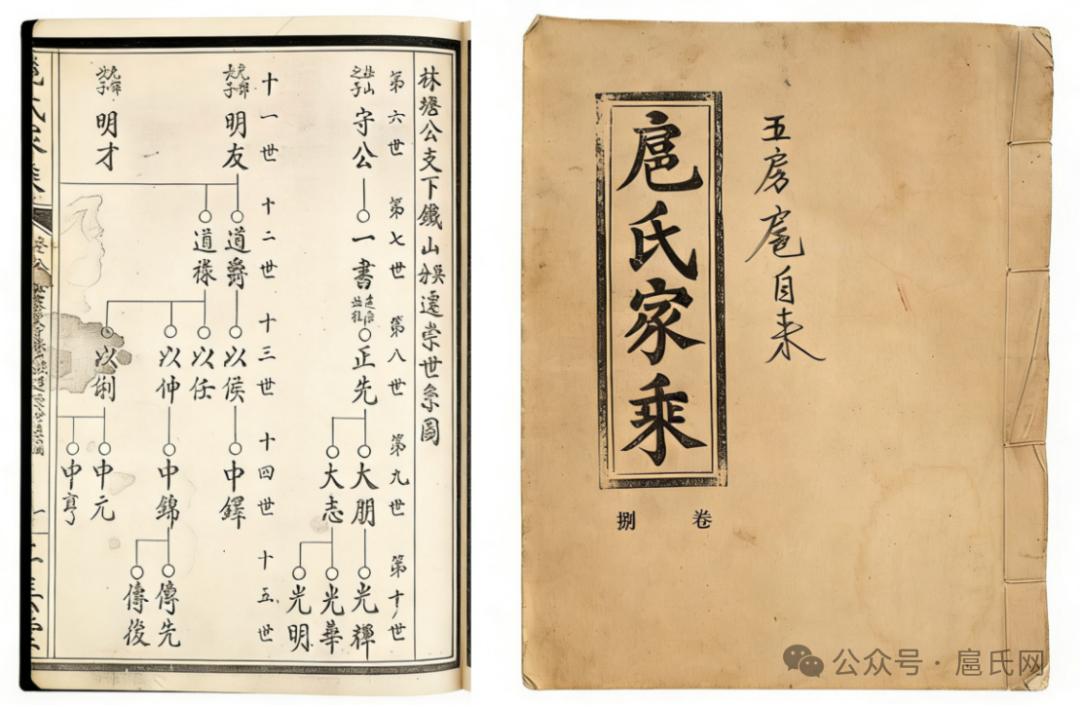 林塘公支下鐵山嶺遷崇世系圖
第六世
第七世
第八世
第九世
第十世
之子
守公
一書
正先
大朋
大志
光輝
光華
光明
十一世
十二世
十三世
十四世
十五世
長子
明友
次子
明才
道爵
道祿
以侯
以任
以仲
以俐
中鐸
中錦
中元
中亨
傳先
傳後
扈氏家乘
卷捌
五房扈自来
公众号·扈氏网